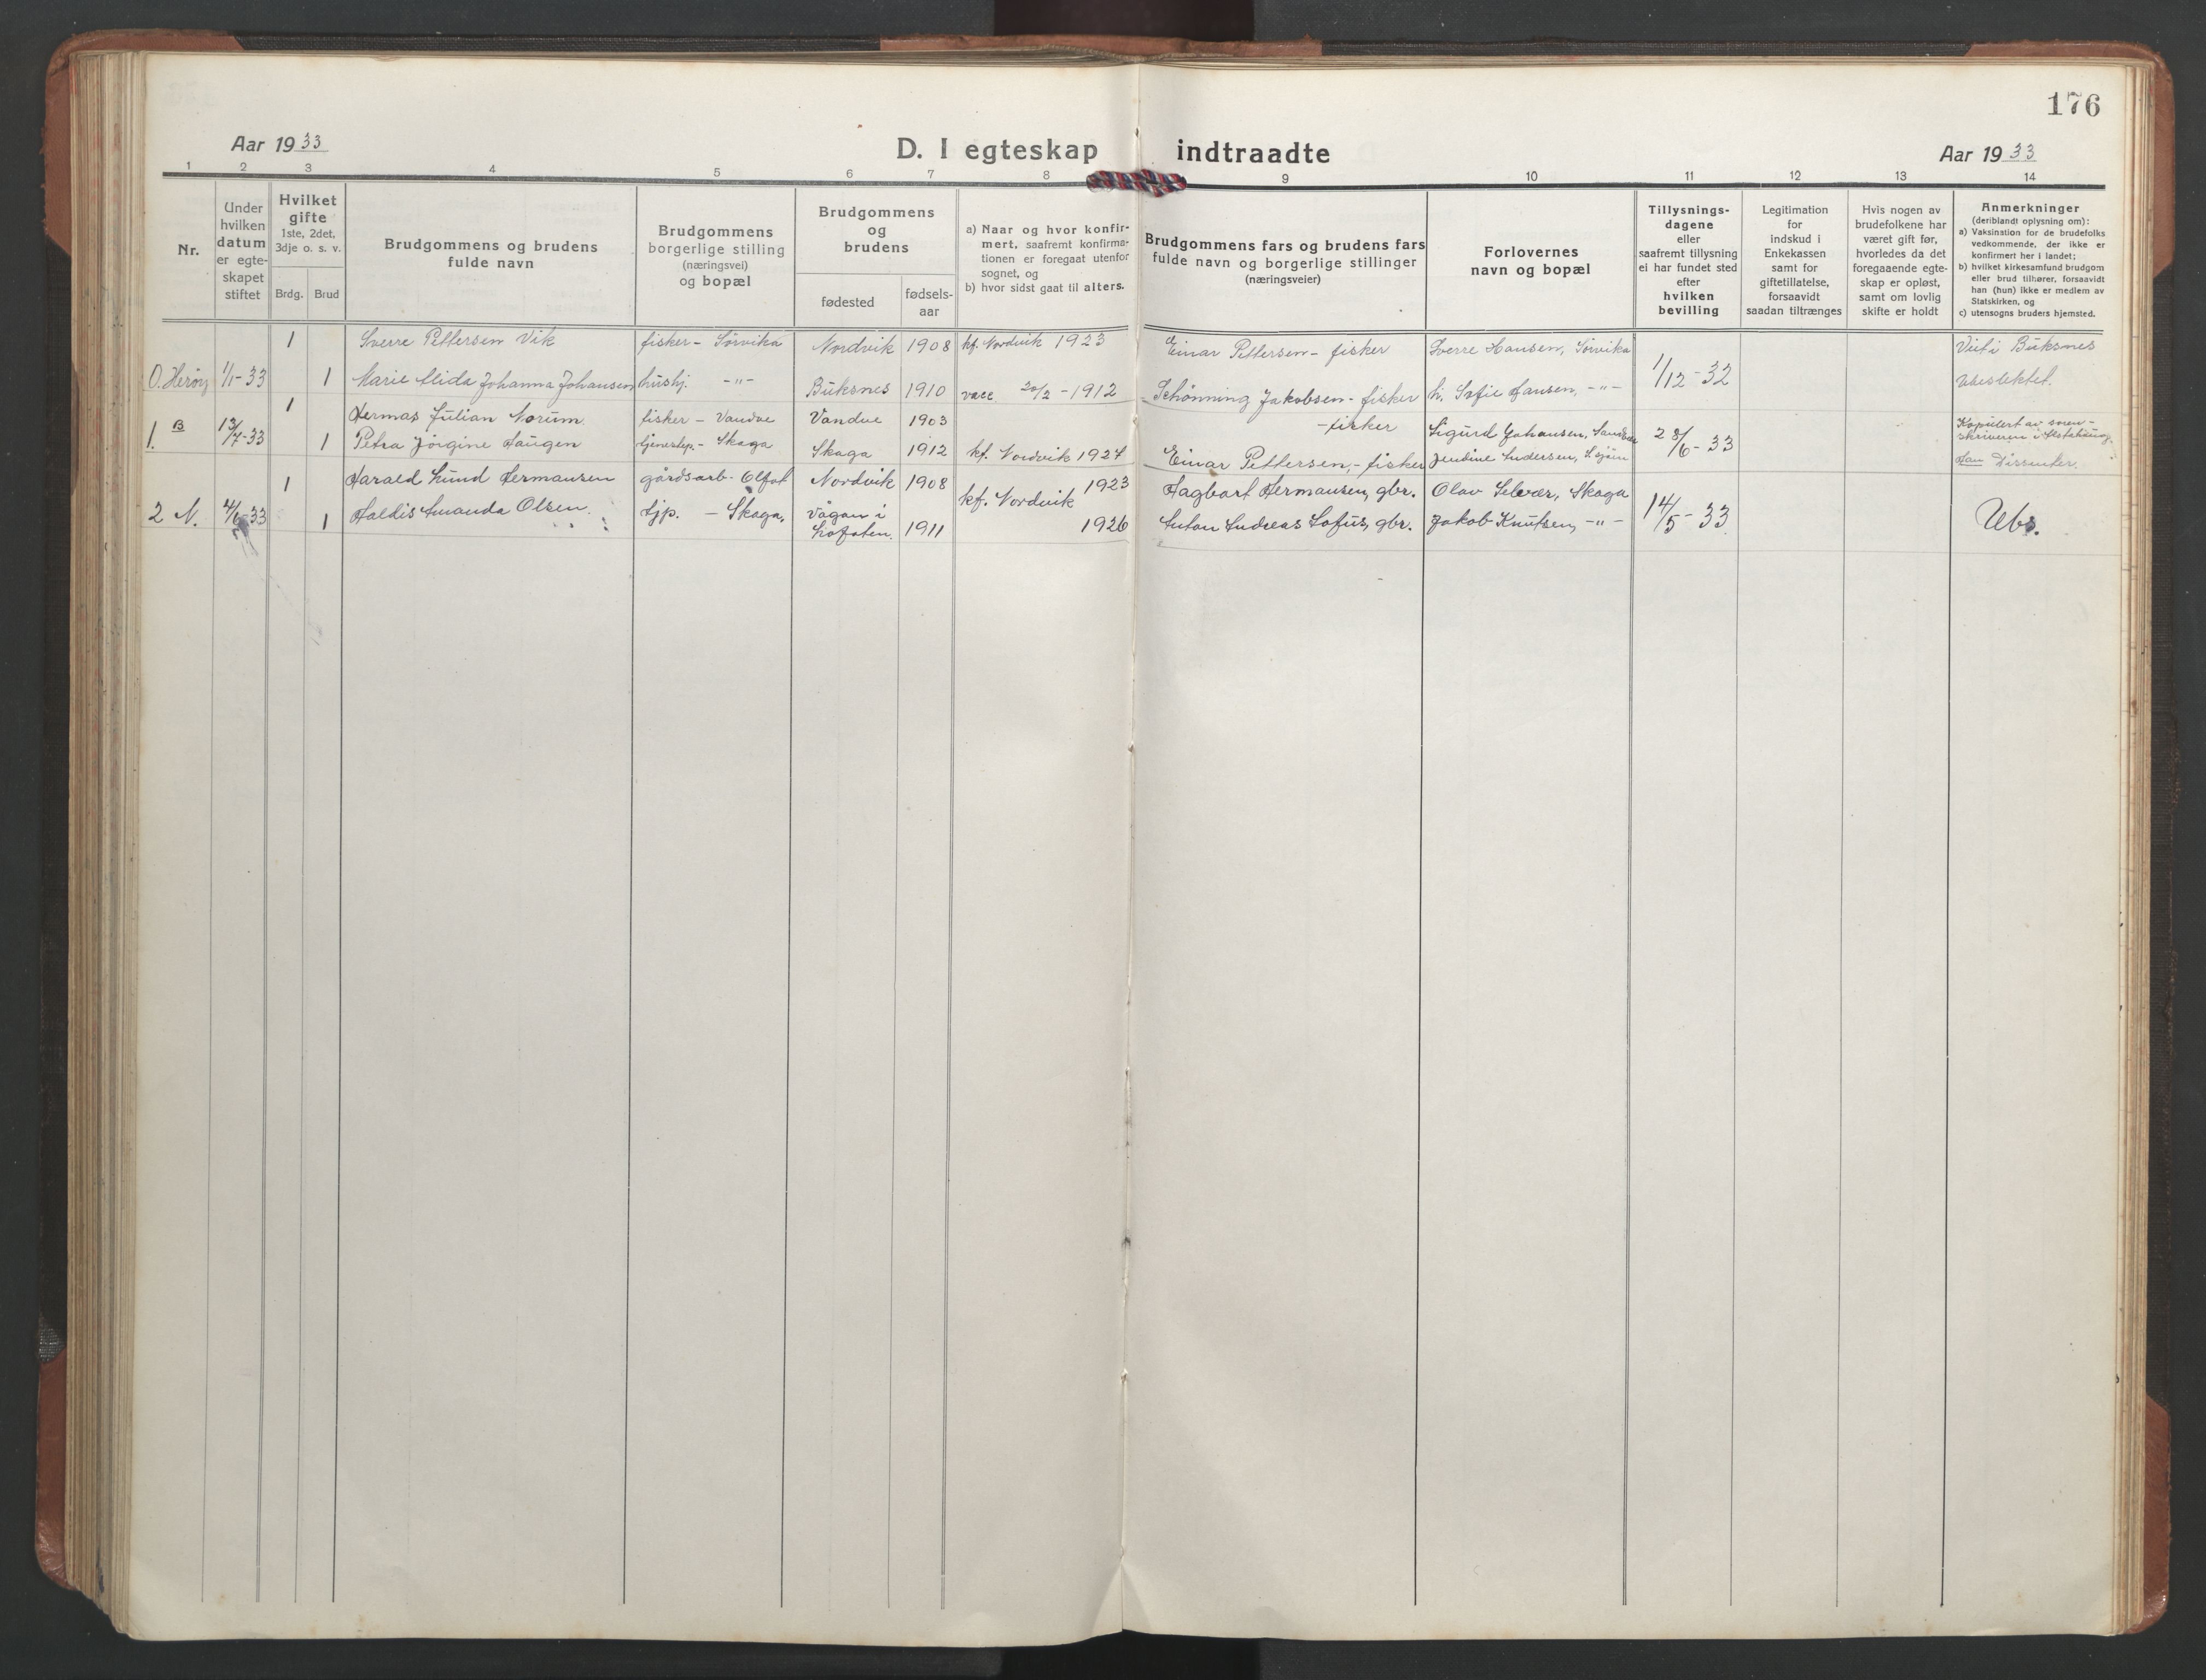 176
Aar 1933
D. I egteskap indtraadte
Aar 1933
1 2 3 4 5 6 7 8 9 10 11 12 13 14
Nr.
Under
hvilken
datum
er egte-
skapet
stiftet
Hvilket
gifte
1ste, 2det,
3dje o. s. v.
Brdg. Brud
Brudgommens og brudens
fulde navn
Brudgommens
borgerlige stilling
(næringsvei)
og bopæl
Brudgommens
og
brudens
fødested
fødsels-
aar
a) Naar og hvor konfir-
mert, saafremt konfirma-
tionen er foregaat utenfor
sognet, og
b) hvor sidst gaat til alters.
Brudgommens fars og brudens fars
fulde navn og borgerlige stillinger
(næringsveier)
Forlovernes
navn og bopæl
Tillysnings-
dagene
eller
saafremt tillysning
ei har fundet sted
efter
hvilken
bevilling
Legitimation
for
indskud i
Enkekassen
samt for
giftetillatelse,
forsaavidt
saadan tiltrænges
Hvis nogen av
brudefolkene har
været gift før,
hvorledes da det
foregaaende egte-
skap er opløst,
samt om lovlig
skifte er holdt
Anmerkninger
(deriblandt oplysning om):
a) Vaksination for de brudefolks
vedkommende, der ikke er
konfirmert her i landet;
b) hvilket kirkesamfund brudgom
eller brud tilhører, forsaavidt
han (hun) ikke er medlem av
Statskirken, og
c) utensogns bruders hjemsted.
1 Sverre Pettersen Vik fisker - Sørvika Nordvik 1908 kf. Nordvik 1923 Einar Pettersen - fisker Sverre Hansen, Sørvika Viet i Buksnes
0. Herøy 1/1-33 1 Marie Alida Johanna Johansen hushj. -"- Buksnes 1910 vacc. 20/2-1912 Schønning Jakobsen - fisker h. Sofie Hansen, -"- 1/12-32 Ubeslektet.
1 Hermas Julian Norum fisker - Vandve Vandve 1903 - fisker Sigurd Johansen, Kopulert av soren-
skriveren i Alstahaug.
1. B 13/7-33 1 Petra Jørgine Haugen tjenestep. - Skaga Skaga 1912 kf. Nordvik 1927 Einar Pettersen, - fisker Jendine Andersen, 28/6-33 Han Dissenter.
1 Harald Lund Hermansen gårdsarb - Nordvik 1908 kf. Nordvik 1923 Dagbart Hermansen, gbr. Olav Selvær, Skaga
2 N. 4/6-33 1 Haldis Amanda Olsen. tjp. - Skaga, Vågan i
Lofoten. 1911 1926 Anton Andreas Sofus, gbr. Jakob Knutsen, -"- 14/5-33 Ubs.